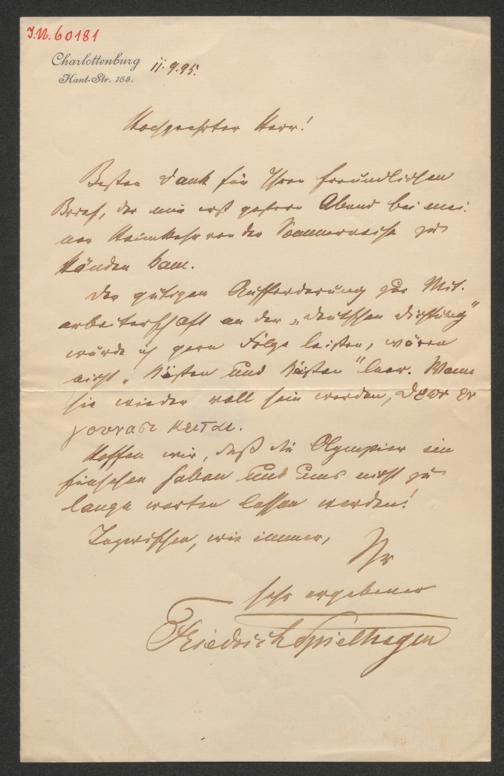 I.N. 60181
Charlottenburg
Kant-Str. 165.
11.9.95.
Hochgeehrter Herr!
Besten Dank für Ihren freundlichen
Brief, der mir erst gestern Abend bei mei-
ner Heimkehr von der Sommerreise zu
Händen kam.
Der gütigen Aufforderung zur Mit-
arbeiterschaft an der „deutschen Dichtung"
würde ich gern Folge leisten, wären
nicht „Kisten und Kasten" leer. Wann
sie wieder voll sein werden, θεων εν
γουνασι κειται.
Hoffen wir, daß die Olympier ein
Einsehen haben und uns nicht zu
lange warten lassen werden!
Inzwischen, wie immer,
Ihr
sehr ergebener
Friedrich Spielhagen